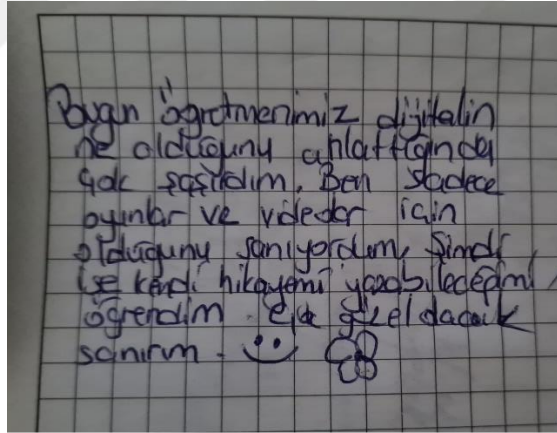 Bugün öğretmenimiz dijitalin
ne olduğunu anlattığında
çok şaşırdım. Ben sadece
oyunlar ve videolar için
olduğunu sanıyordum, Şimdi
ise kendi hikayemi yazabileceğimi
öğrendim güzel olacak
sanırım.